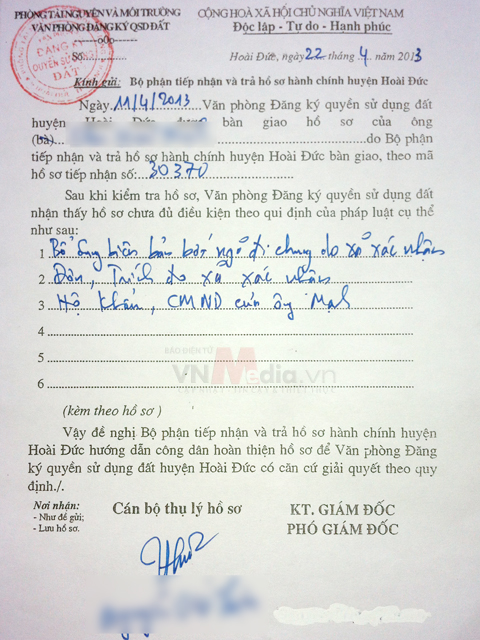 PHÒNG TÀI NGUYÊN VÀ MÔI TRƯỜNG
VĂN PHÒNG ĐĂNG KÝ QSD ĐẤT
CỘNG HOÀ XÃ HỘI CHỦ NGHĨA VIỆT NAM
Độc lập - Tự do - Hạnh phúc
ĐĂNG KÝ
QUYỀN SỬ DỤNG
ĐẤT
Số:
Hoài Đức, ngày 22 tháng 4 năm 2013
Kính gửi: Bộ phận tiếp nhận và trả hồ sơ hành chính huyện Hoài Đức
Ngày 11/4/2013 Văn phòng Đăng ký quyền sử dụng đất
huyện Hoài Đức được bàn giao hồ sơ của ông
(bà) do Bộ phận
tiếp nhận và trả hồ sơ hành chính huyện Hoài Đức bàn giao, theo mã
hồ sơ tiếp nhận số: 30370
Sau khi kiểm tra hồ sơ, Văn phòng Đăng ký quyền sử dụng đất
nhận thấy hồ sơ chưa đủ điều kiện theo qui định của pháp luật cụ thể
như sau:
1 Bổ sung biên bản ngõ đi chung do xã xác nhận
2 Đơn, Trích đo xã xác nhận
3 Hộ khẩu, CMND của ông Mạch
4
5
6
BÁO ĐIỆN TỬ
VNMedia.vn
(kèm theo hồ sơ)
Vậy đề nghị Bộ phận tiếp nhận và trả hồ sơ hành chính huyện
Hoài Đức hướng dẫn công dân hoàn thiện hồ sơ để Văn phòng Đăng
ký quyền sử dụng đất huyện Hoài Đức có căn cứ giải quyết theo quy
định./.
Nơi nhận:
- Như đề gửi;
- Lưu hồ sơ.
Cán bộ thụ lý hồ sơ
KT. GIÁM ĐỐC
PHÓ GIÁM ĐỐC